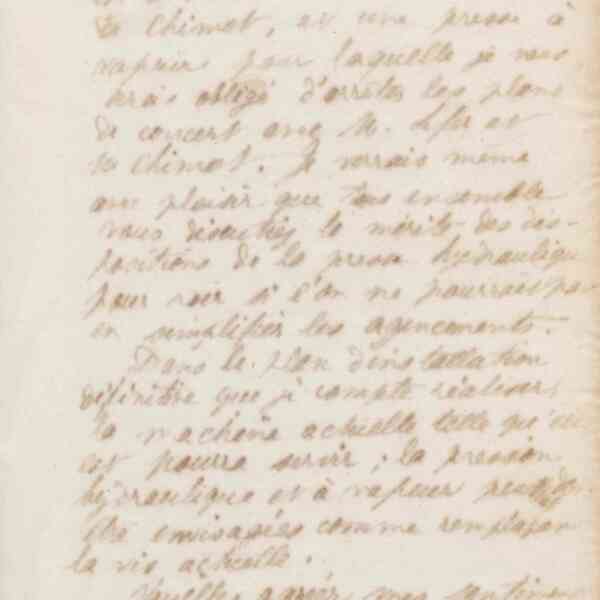 Chimot, et une presse à
vapeur pour laquelle je vous
serais obligé d'arrêter les plans
de concert avec M. et
Chimot. Je verrais même
avec plaisir que tous ensemble
vous discutiez le mérite des dis-
positions de la presse hydraulique
pour voir si l'on ne pourrait pas
en simplifier les agencements.
Dans le plan d'installation
définitive que je compte réaliser,
la machine actuelle telle qu'elle
est pourra servir ; la pression
hydraulique et à vapeur
être envisagées comme remplaçant
la vis actuelle.
Veuillez agréer, mes